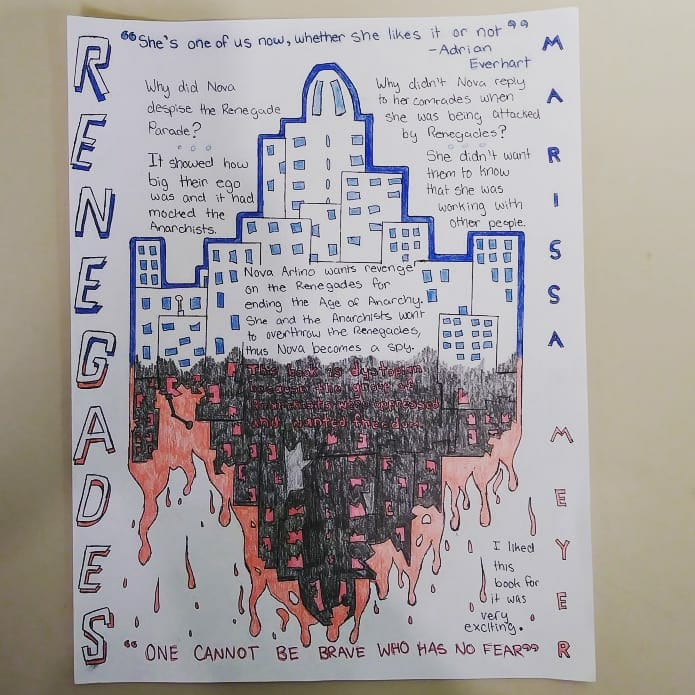 "She's one of us now, whether she likes it or not"
-Adrian
Everhart
RENEGADES
MARISSA MEYER
Why did Nova
despise the Renegade
Parade?
It showed how
big their ego
was and it had
mocked the
Anarchists.
Why didn't Nova reply
to her comrades when
she was being attacked
by Renegades?
She didn't want
them to know
that she was
working with
other people.
Nova Artino wants revenge
on the Renegades for
ending the Age of Anarchy.
She and the Anarchists want
to overthrow the Renegades,
thus Nova becomes a spy.
This book is dystopian
because this group of
Anarchists was oppressed
and wanted freedom.
I liked
this
book for
it was
very
exciting.
"ONE CANNOT BE BRAVE WHO HAS NO FEAR"